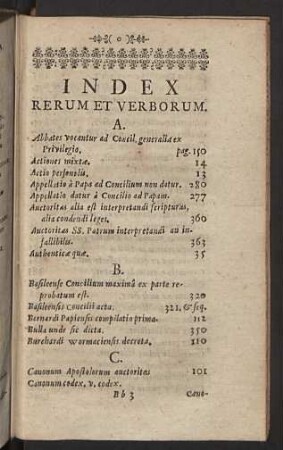 o
INDEX
RERUM ET VERBORUM.
A.
Abbates vocantur ad Concil. generalia ex
Privilegio. pag. 150
Actiones mixtæ. 14
Actio personalis. 13
Appellatio à Papa ad Concilium non datur. 280
Appellatio datur à Concilio ad Papam. 277
Auctoritas alia est interpretandi scripturas,
alia condendi leges. 360
Auctoritas SS. Patrum interpretandi an in-
fallibilis. 363
Authenticæ quæ. 35
B.
Basileense Concilium maximâ ex parte re-
probatum est. 320
Basileensis Concilii acta. 321. & seq.
Bernardi Papiensis compilatio prima. 112
Bulla unde sic dicta. 350
Burchardi wormaciensis decreta. 110
C.
Canonum Apostolorum auctoritas 101
Canonum codex, v. codex.
Bb 3 Cano-